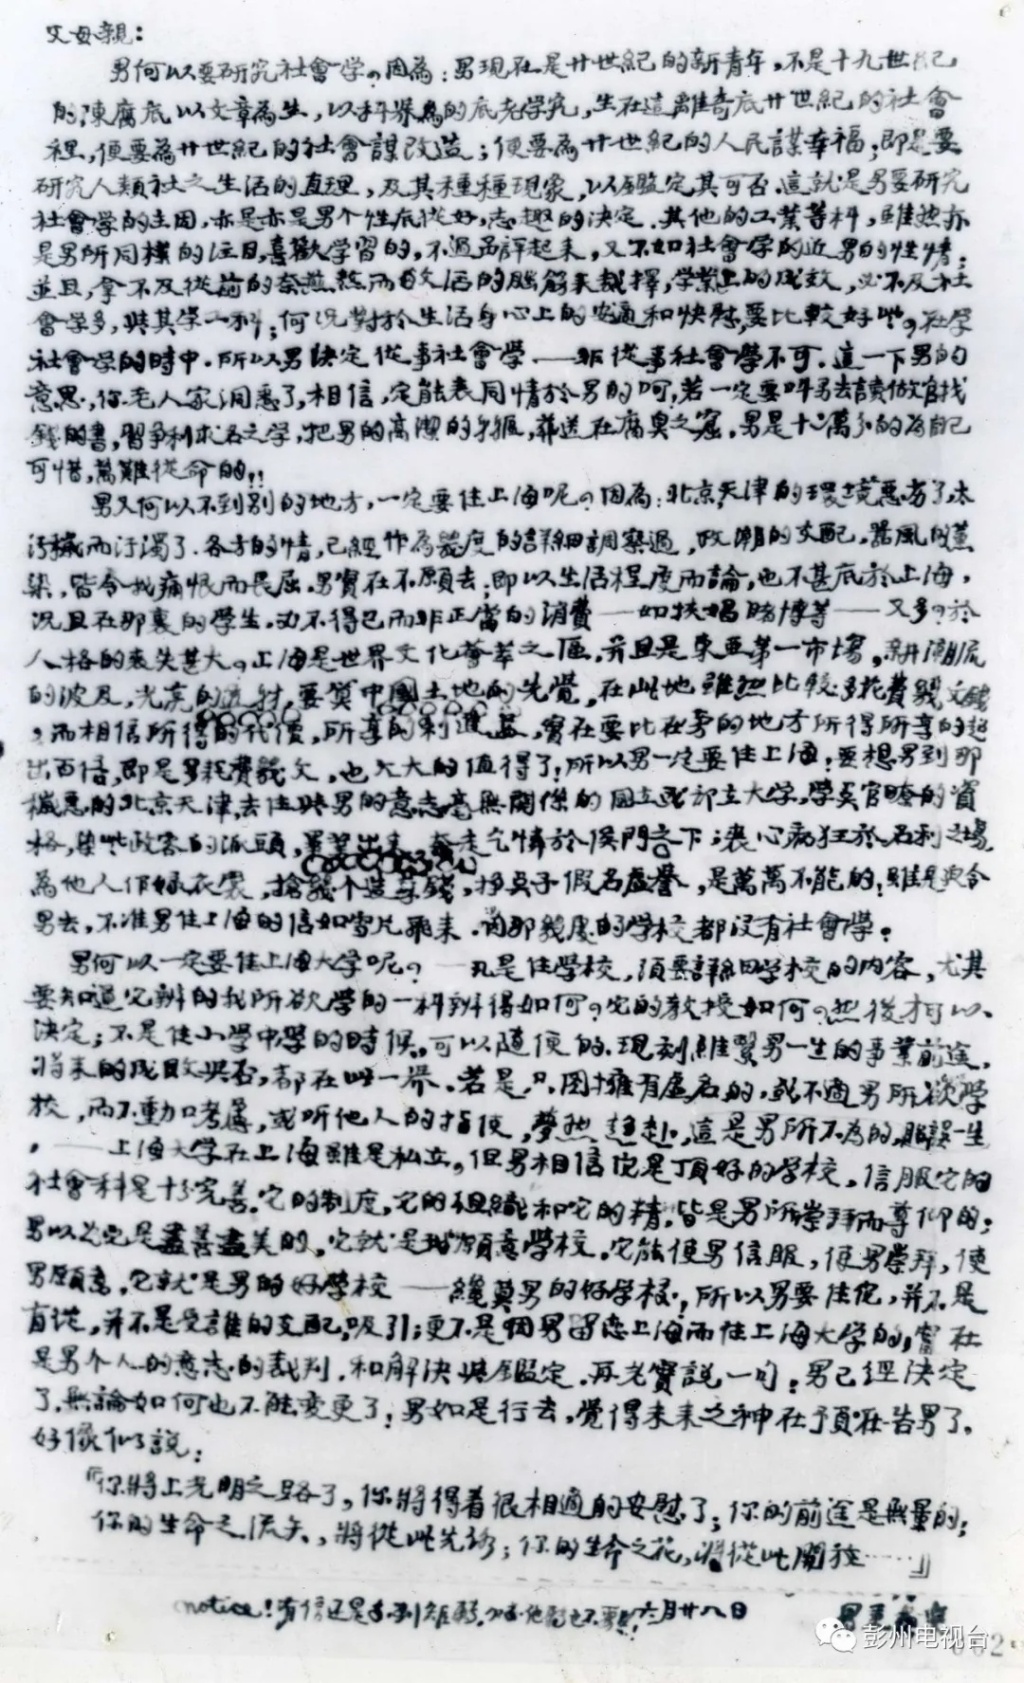 父母親：
男何以要研究社會学？因為：男現在是廿世紀的新青年，不是十九世紀
的陳腐底以文章為生，以科舉為的底老学究，生在這離奇底廿世紀的社會
裡，便要為廿世紀的社會謀改造；便要為廿世紀的人民謀幸福；即是要
研究人類社之生活的真理，及其種種現象，以鑑定其可否，這就是男要研究
社會學的主因，亦是亦是男个性底從好，志趣的決定．其他的工業等科，雖然亦
是男所同樣的注目，喜歡学習的，不過品評起来，又不如社會学的近男的性情；
並且，拿不及從前的
而
活的腦筋來裁擇，学業上的成效，必不及社
會学多，與其学一科；何況對於生活身心上的安適和快慰，要比較好些。在学
社會学的時中．所以男決定從事社會学——非從事社會學不可．這一下男的
意思，你老人家洞悉了，相信，定能表同情於男的呵，若一定要叫男去讀做官找
錢的書，習爭利求名之学，把男的高潔的身軀，葬送在腐臭之窟．男是十二萬分的為自己
可惜，萬難從命的！！
男又何以不到別的地方，一定要住上海呢？因為：北京天津的環境惡劣了，太
汚穢而汙濁了．各方的情，已經作為幾度的詳細調察過，政潮的支配，惡風的薰
染，皆令我痛恨而畏屈．男實在不願去；即以生活程度而論，也不甚底於上海，
況且在那裏的學生．
不得已而非正當的消費——如挾娼賭博等——又多？於
人格的喪失甚大。上海是世界文化薈萃之區．并且是東亞第一市場，新潮流
的波及，光亮的
射，要算中國土地的先覺，在此地雖然比較多花費幾文錢
，而相信所得的代價，所享的利進益，實在要比在旁的地方所得所享的超
出百倍，即是多耗費幾文，也大大的值得了；所以男一定要住上海；要想男到那
穢惡的北京天津，去住與男的意志毫無關係的国立或部立大学，學点官僚的資
格，染些政客的派頭，畢業出来，奔走乞憐於侯門之下；喪心病狂於名利之場，
為他人作嫁衣裳，搶幾个造孽錢，掙点子假名虛譽，是萬萬不能的；雖是
令
男去，不准男住上海的信如雪片飛来．
那幾處的学校都没有社會學。
男何以一定要住上海大学呢？——凡是住学校，須要詳細学校的內容，尤其
要知道它辦的我所欲学的一科辦得如何？它的教授如何？然後才可以、
決定；不是住小学中學的時候，可以隨便的．現刻
男一生的事業前途，
將来的成敗與否，都在此一舉．若是只圖擁有虛名的，或不適男所欲学
校，而不動口考慮，或听他人的指使，
然趋赴，這是男所不為的，
誤一生
。——上海大学在上海雖是私立，但男相信它是頂好的学校，信服它的
社會科是十分完善．它的制度，它的組織和它的精．皆是男所崇拜而尊仰的；
男以為它是盡善盡美的．它就是我願意學校．它能使男信服，使男崇拜，使
男願意．它就是男的好學校——纔算男的好学校．所以男要住它，并不是
盲從，并不是受誰的支配，吸引；更不是個男留戀上海而住上海大学的，實在
是男个人的意志的裁判．和解決與鑑定．再老實說一句：男已經決定
了．無論如何也不能變更了；男如是行去，覺得未来之神在預在告男了．
好像似說：
『你將上光明之路了，你將得着很相適的安慰了；你的前途是無量的；
你的生命之流矢，將從此先
；你的生命之花，將從此開
……』
notice！有信还是
到
六月廿八日
男
彭州电视台